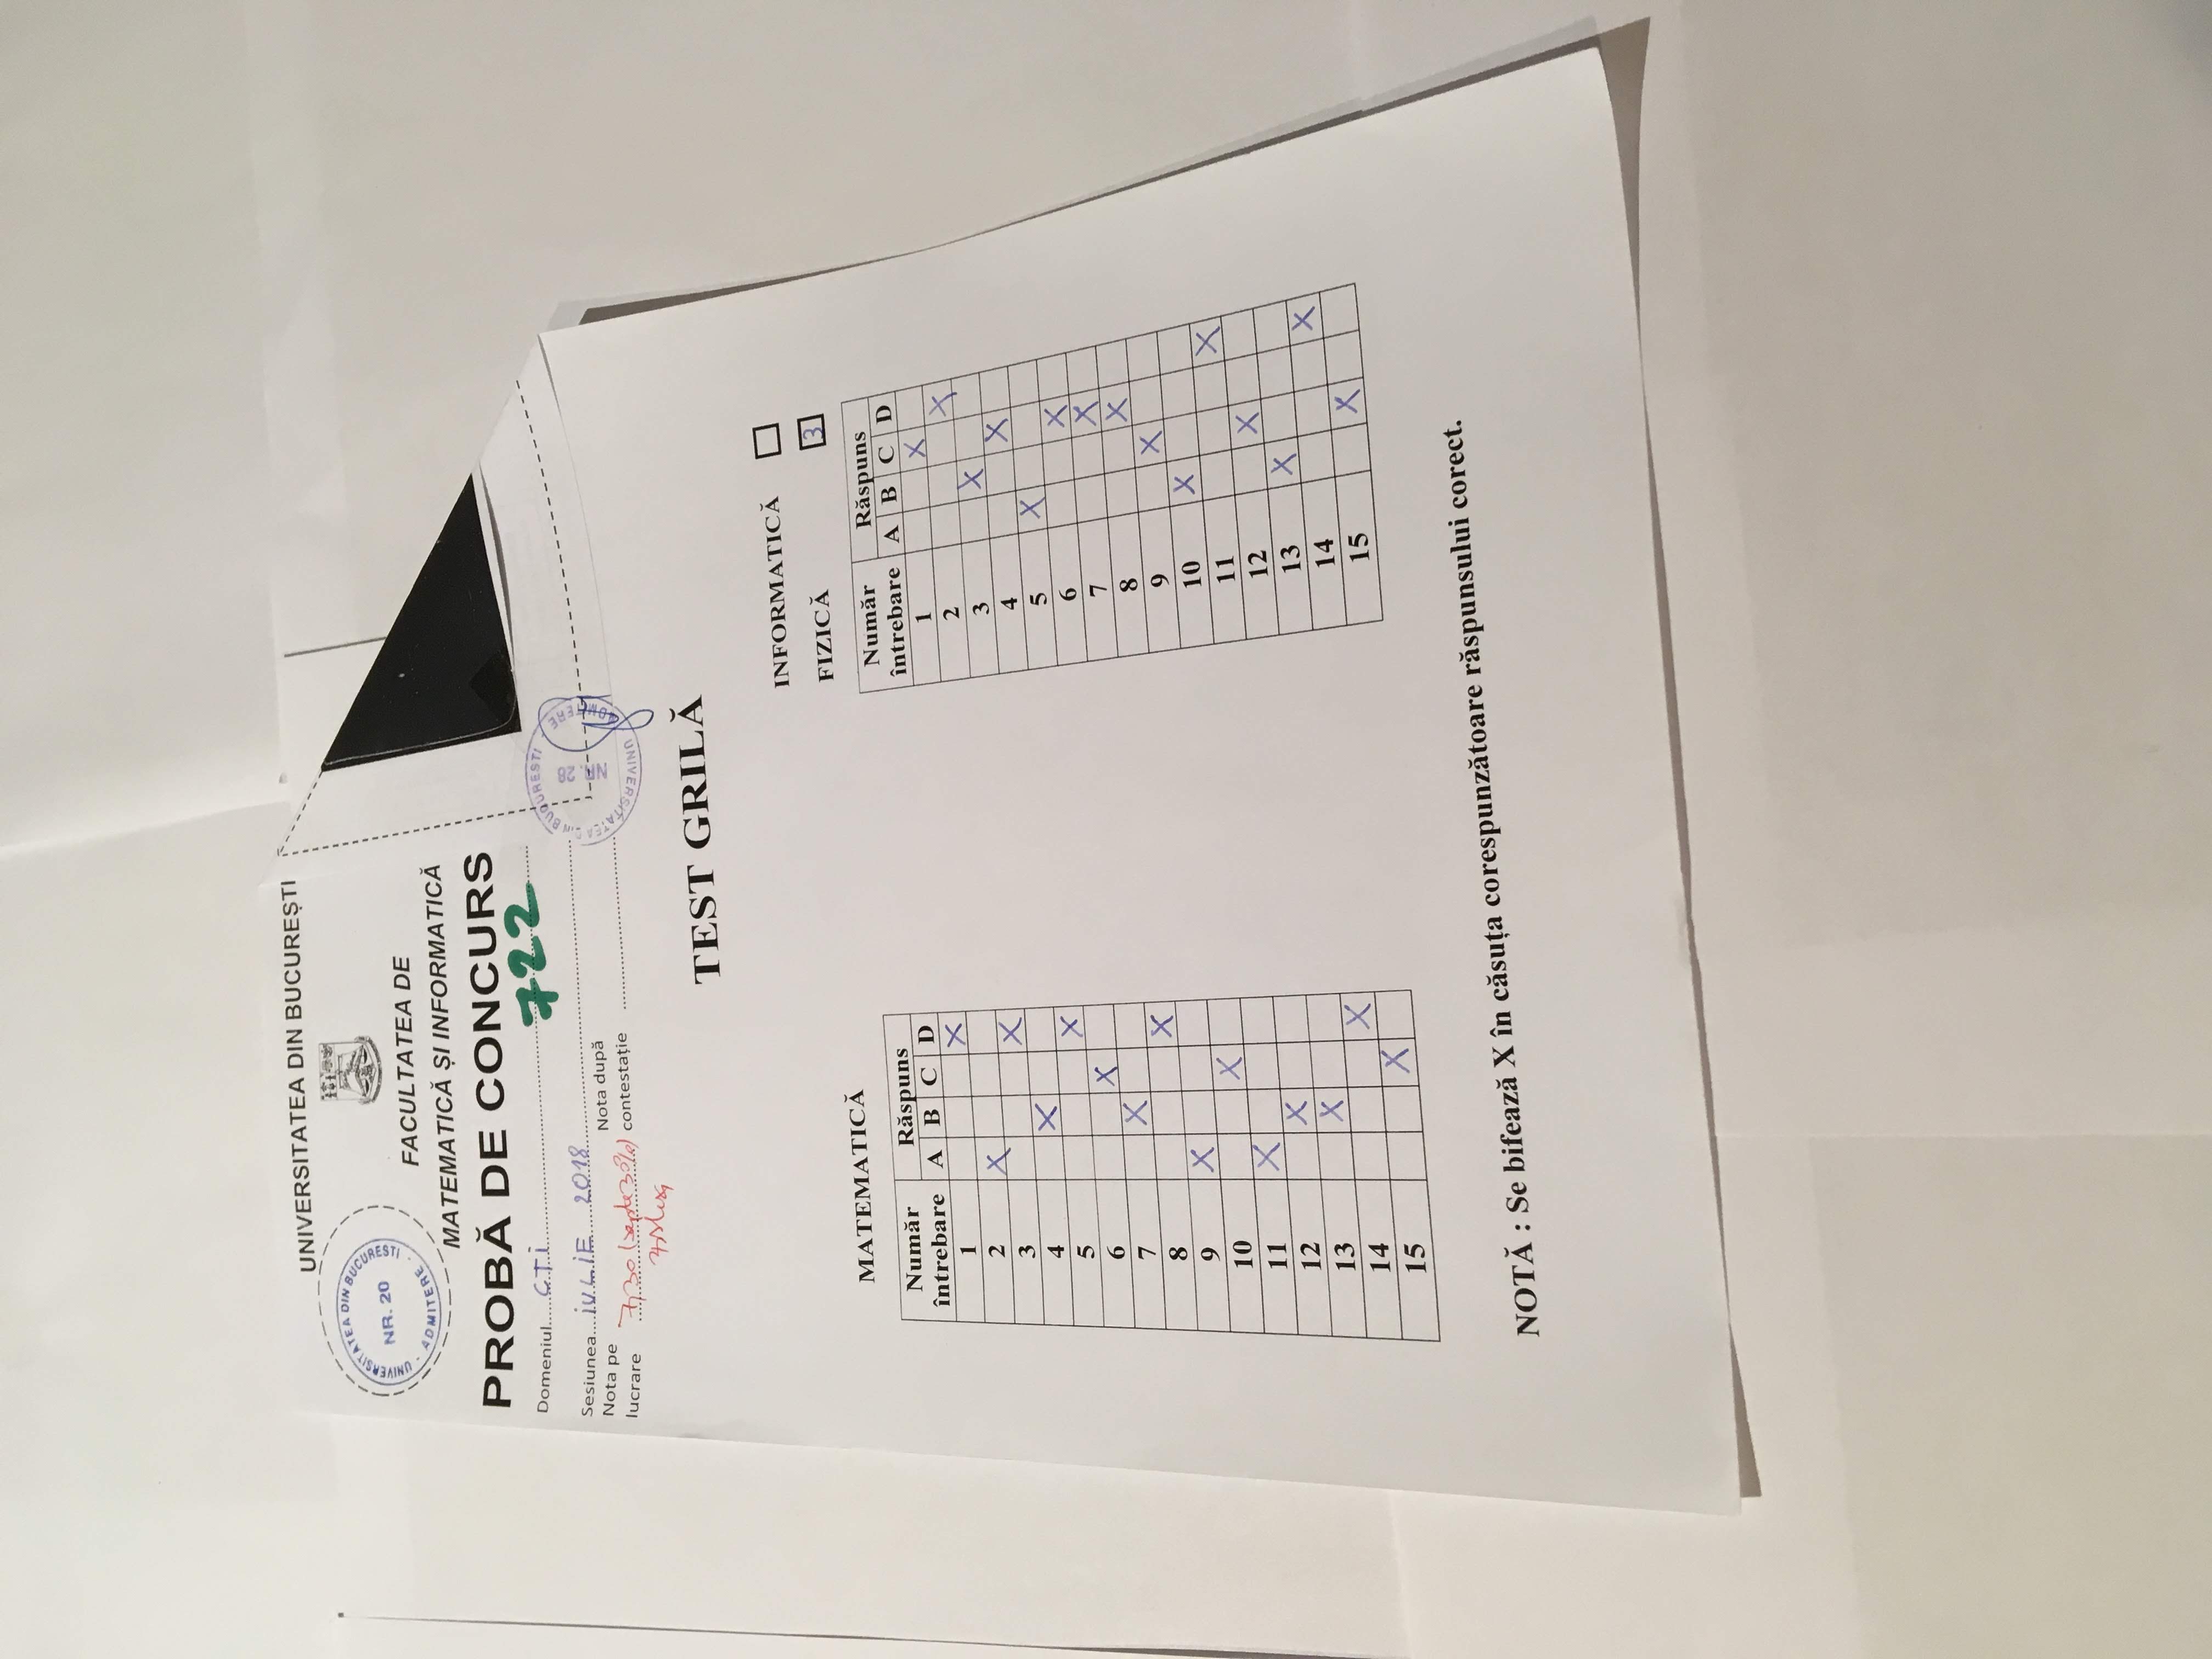 UNIVERSITATEA DIN BUCUREȘTI
UNIVERSITATEA DIN BUCURESTI
NR. 20
- ADMITERE -
FACULTATEA DE
MATEMATICĂ ȘI INFORMATICĂ
PROBĂ DE CONCURS
722
Domeniul CTI
Sesiunea IULIE 2018
Nota pe lucrare 7,30 (septe 30%)
Nota după contestație
UNIVERSITATEA DIN BUCURESTI
NR. 28
ADMITERE
TEST GRILĂ
INFORMATICĂ
FIZICĂ 3
MATEMATICĂ
Număr întrebare Răspuns
A B C D
1 X
2 X
3 X
4 X
5 X
6 X
7 X
8 X
9 X
10 X
11 X
12 X
13 X
14 X
15 X
Număr întrebare Răspuns
A B C D
1 X
2 X
3 X
4 X
5 X
6 X
7 X
8 X
9 X
10 X
11 X
12 X
13 X
14 X
15 X
NOTĂ : Se bifează X în căsuța corespunzătoare răspunsului corect.